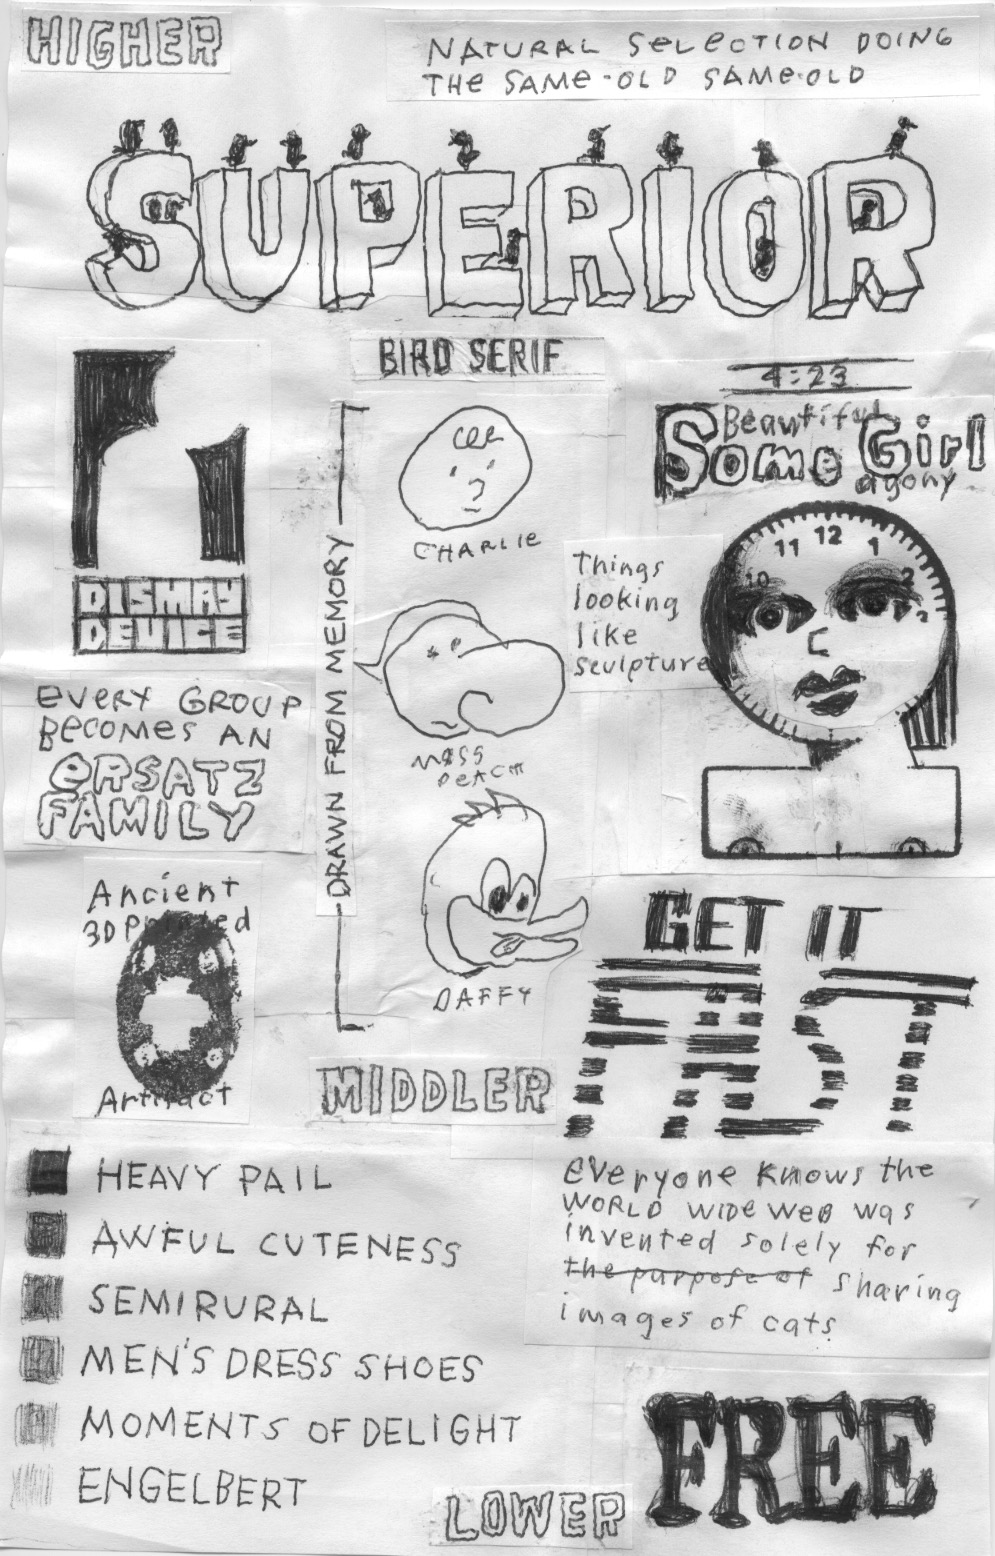 HIGHER
NATURAL SELECTION DOING
THE SAME-OLD SAME-OLD
SUPERIOR
BIRD SERIF
4:23
Beautiful
Some Girl
agony
DISMAY
DEVICE
DRAWN FROM MEMORY
CHARLIE
MISS
PEACH
DAFFY
Things
looking
like
sculpture
10 11 12 1 2 3
EVERY GROUP
BECOMES AN
ERSATZ
FAMILY
Ancient
3D Printed
Artifact
GET IT
FAST
MIDDLER
HEAVY PAIL
AWFUL CUTENESS
SEMIRURAL
MEN'S DRESS SHOES
MOMENTS OF DELIGHT
ENGELBERT
everyone knows the
WORLD WIDE WEB was
invented solely for
the purpose of sharing
images of cats
FREE
LOWER